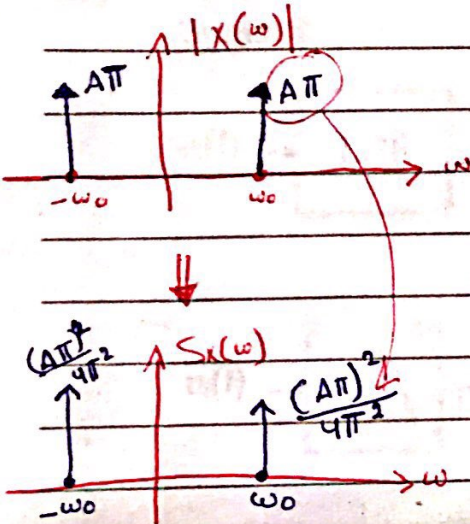 |X(ω)|
Aπ Aπ
-ω₀ ω₀ ω
⇓
(Aπ)²/4π² Sx(ω) (Aπ)²/4π²
-ω₀ ω₀ ω